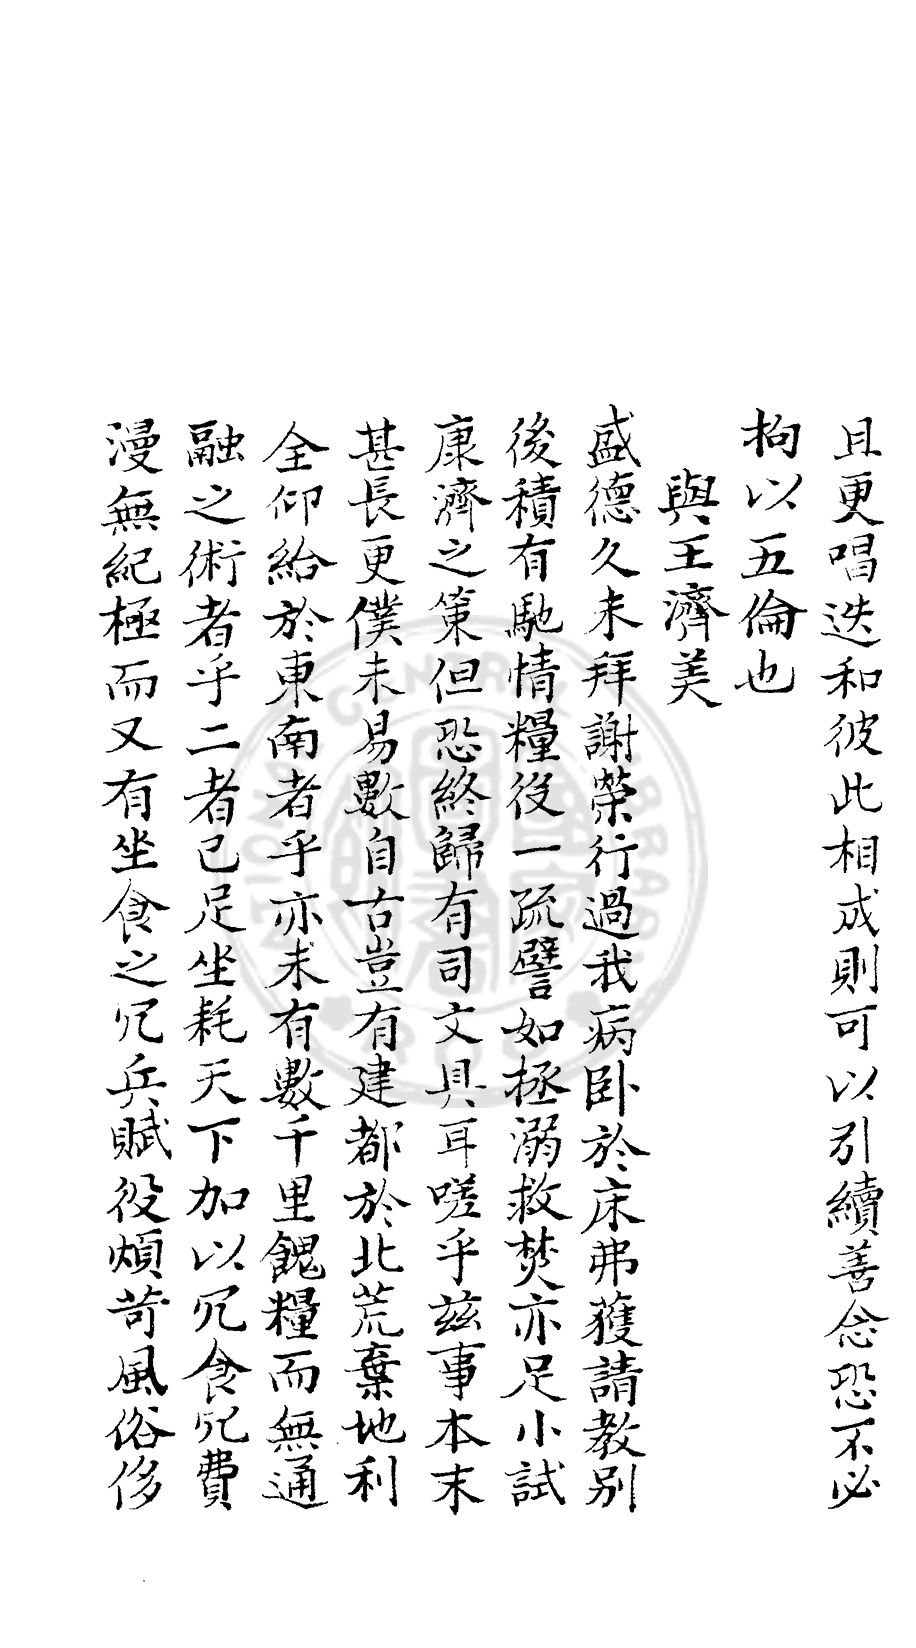 且更唱迭和彼此相成則可以引續善念恐不必
拘以五倫也
與王濟美
盛德久未拜謝榮行過我病卧於床弗獲請教别
後積有馳情糧役一疏譬如拯溺救焚亦足小試
康濟之策但恐終歸有司文具耳嗟乎兹事本末
甚長更僕未易數自古豈有建都於北荒棄地利
全仰給於東南者乎亦未有數千里餽糧而無通
融之術者乎二者已足坐耗天下加以冗食冗費
漫無紀極而又有坐食之冗兵賦役煩苛風俗侈